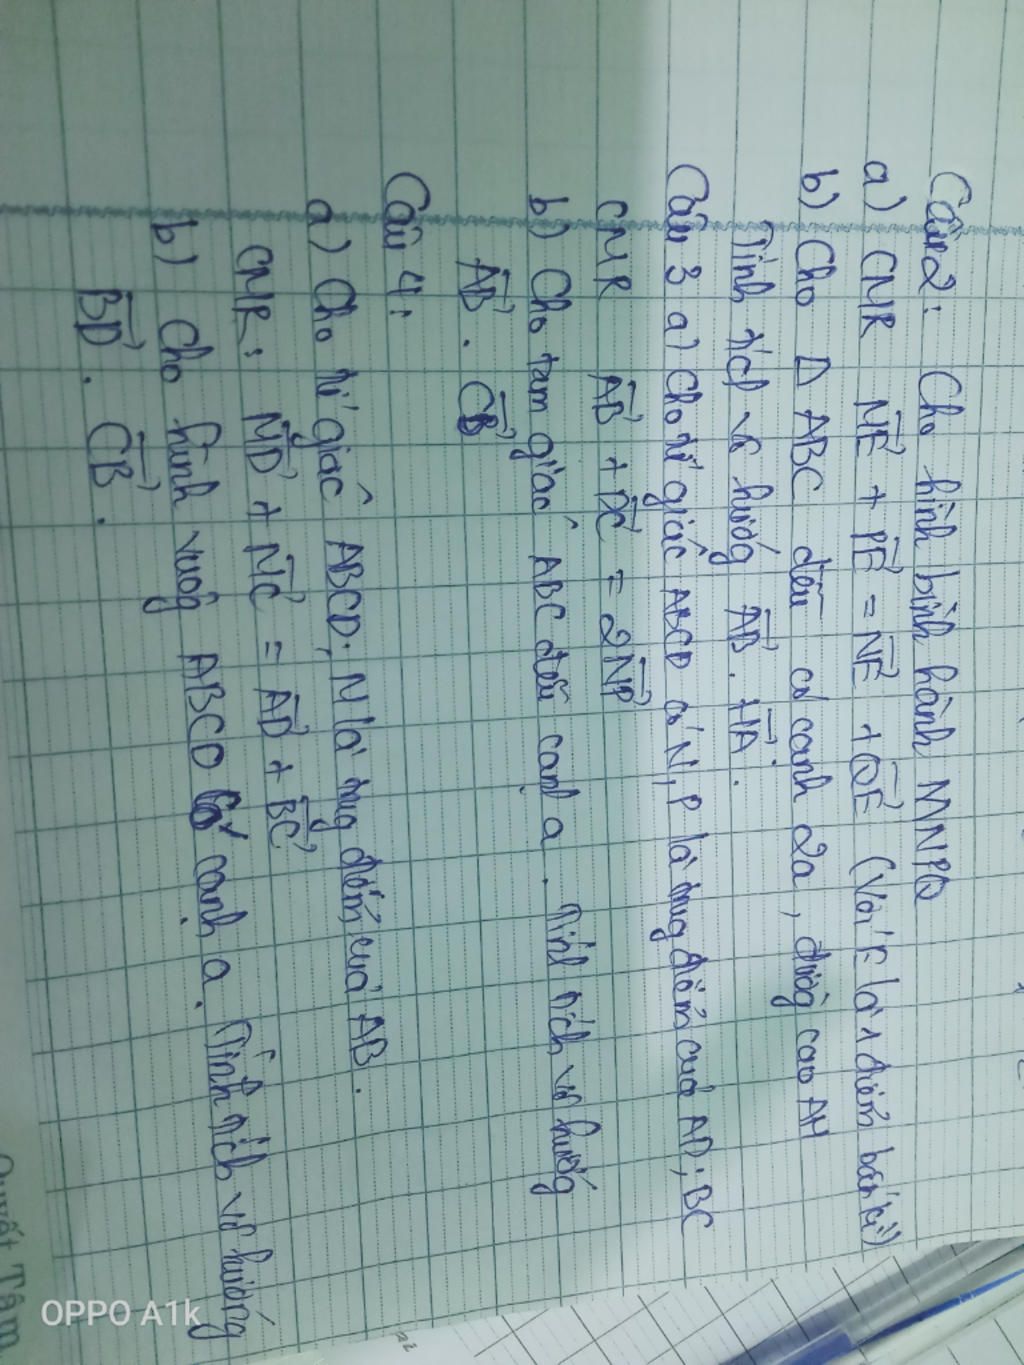 Câu 2: Cho hình bình hành MNPQ
a) CMR ME + PE = NE + QE (Với E là 1 điểm bất kì)
b) Cho Δ ABC đều có cạnh 2a, đường cao AH
Tính tích vô hướng AB . HA.
Câu 3 a) Cho tứ giác ABCD có N, P là trung điểm của AD; BC
CMR AB + DC = 2NP
b) Cho tam giác ABC đều cạnh a. Tính tích vô hướng
AB . CB
Câu 4:
a) Cho tứ giác ABCD; N là trung điểm của AB.
CMR: ND + NC = AD + BC
b) Cho hình vuông ABCD cạnh a. Tính tích vô hướng
BD . CB.
Quyết Tâm
OPPO A1k